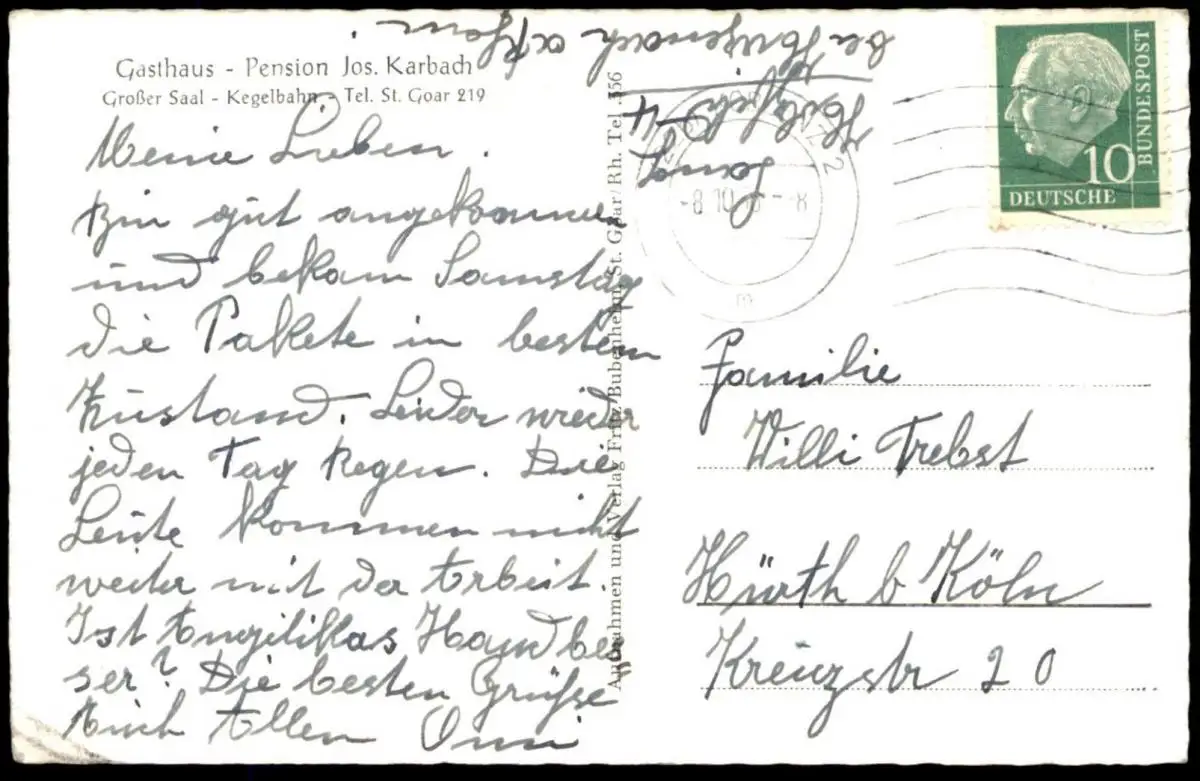 Gasthaus - Pension Jos. Karbach
Großer Saal - Kegelbahn - Tel. St. Goar 219
Meine Lieben.
Bin gut angekommen
und bekam Samstag
die Pakete in bestem
Zustand. Leider wieder
jeden Tag Regen. Die
Leute kommen nicht
weiter mit der Arbeit.
Ist Angelikas Hand bes
ser? Die besten Grüße
Euch Allen Omi
Aufnahmen und Verlag Fritz Bubenheim, St. Goar/Rh. Tel. 356
-8.10. -8
m
BUNDESPOST
10
DEUTSCHE
Familie
Willi Trebst
Hürth b Köln
Kreuzstr 20